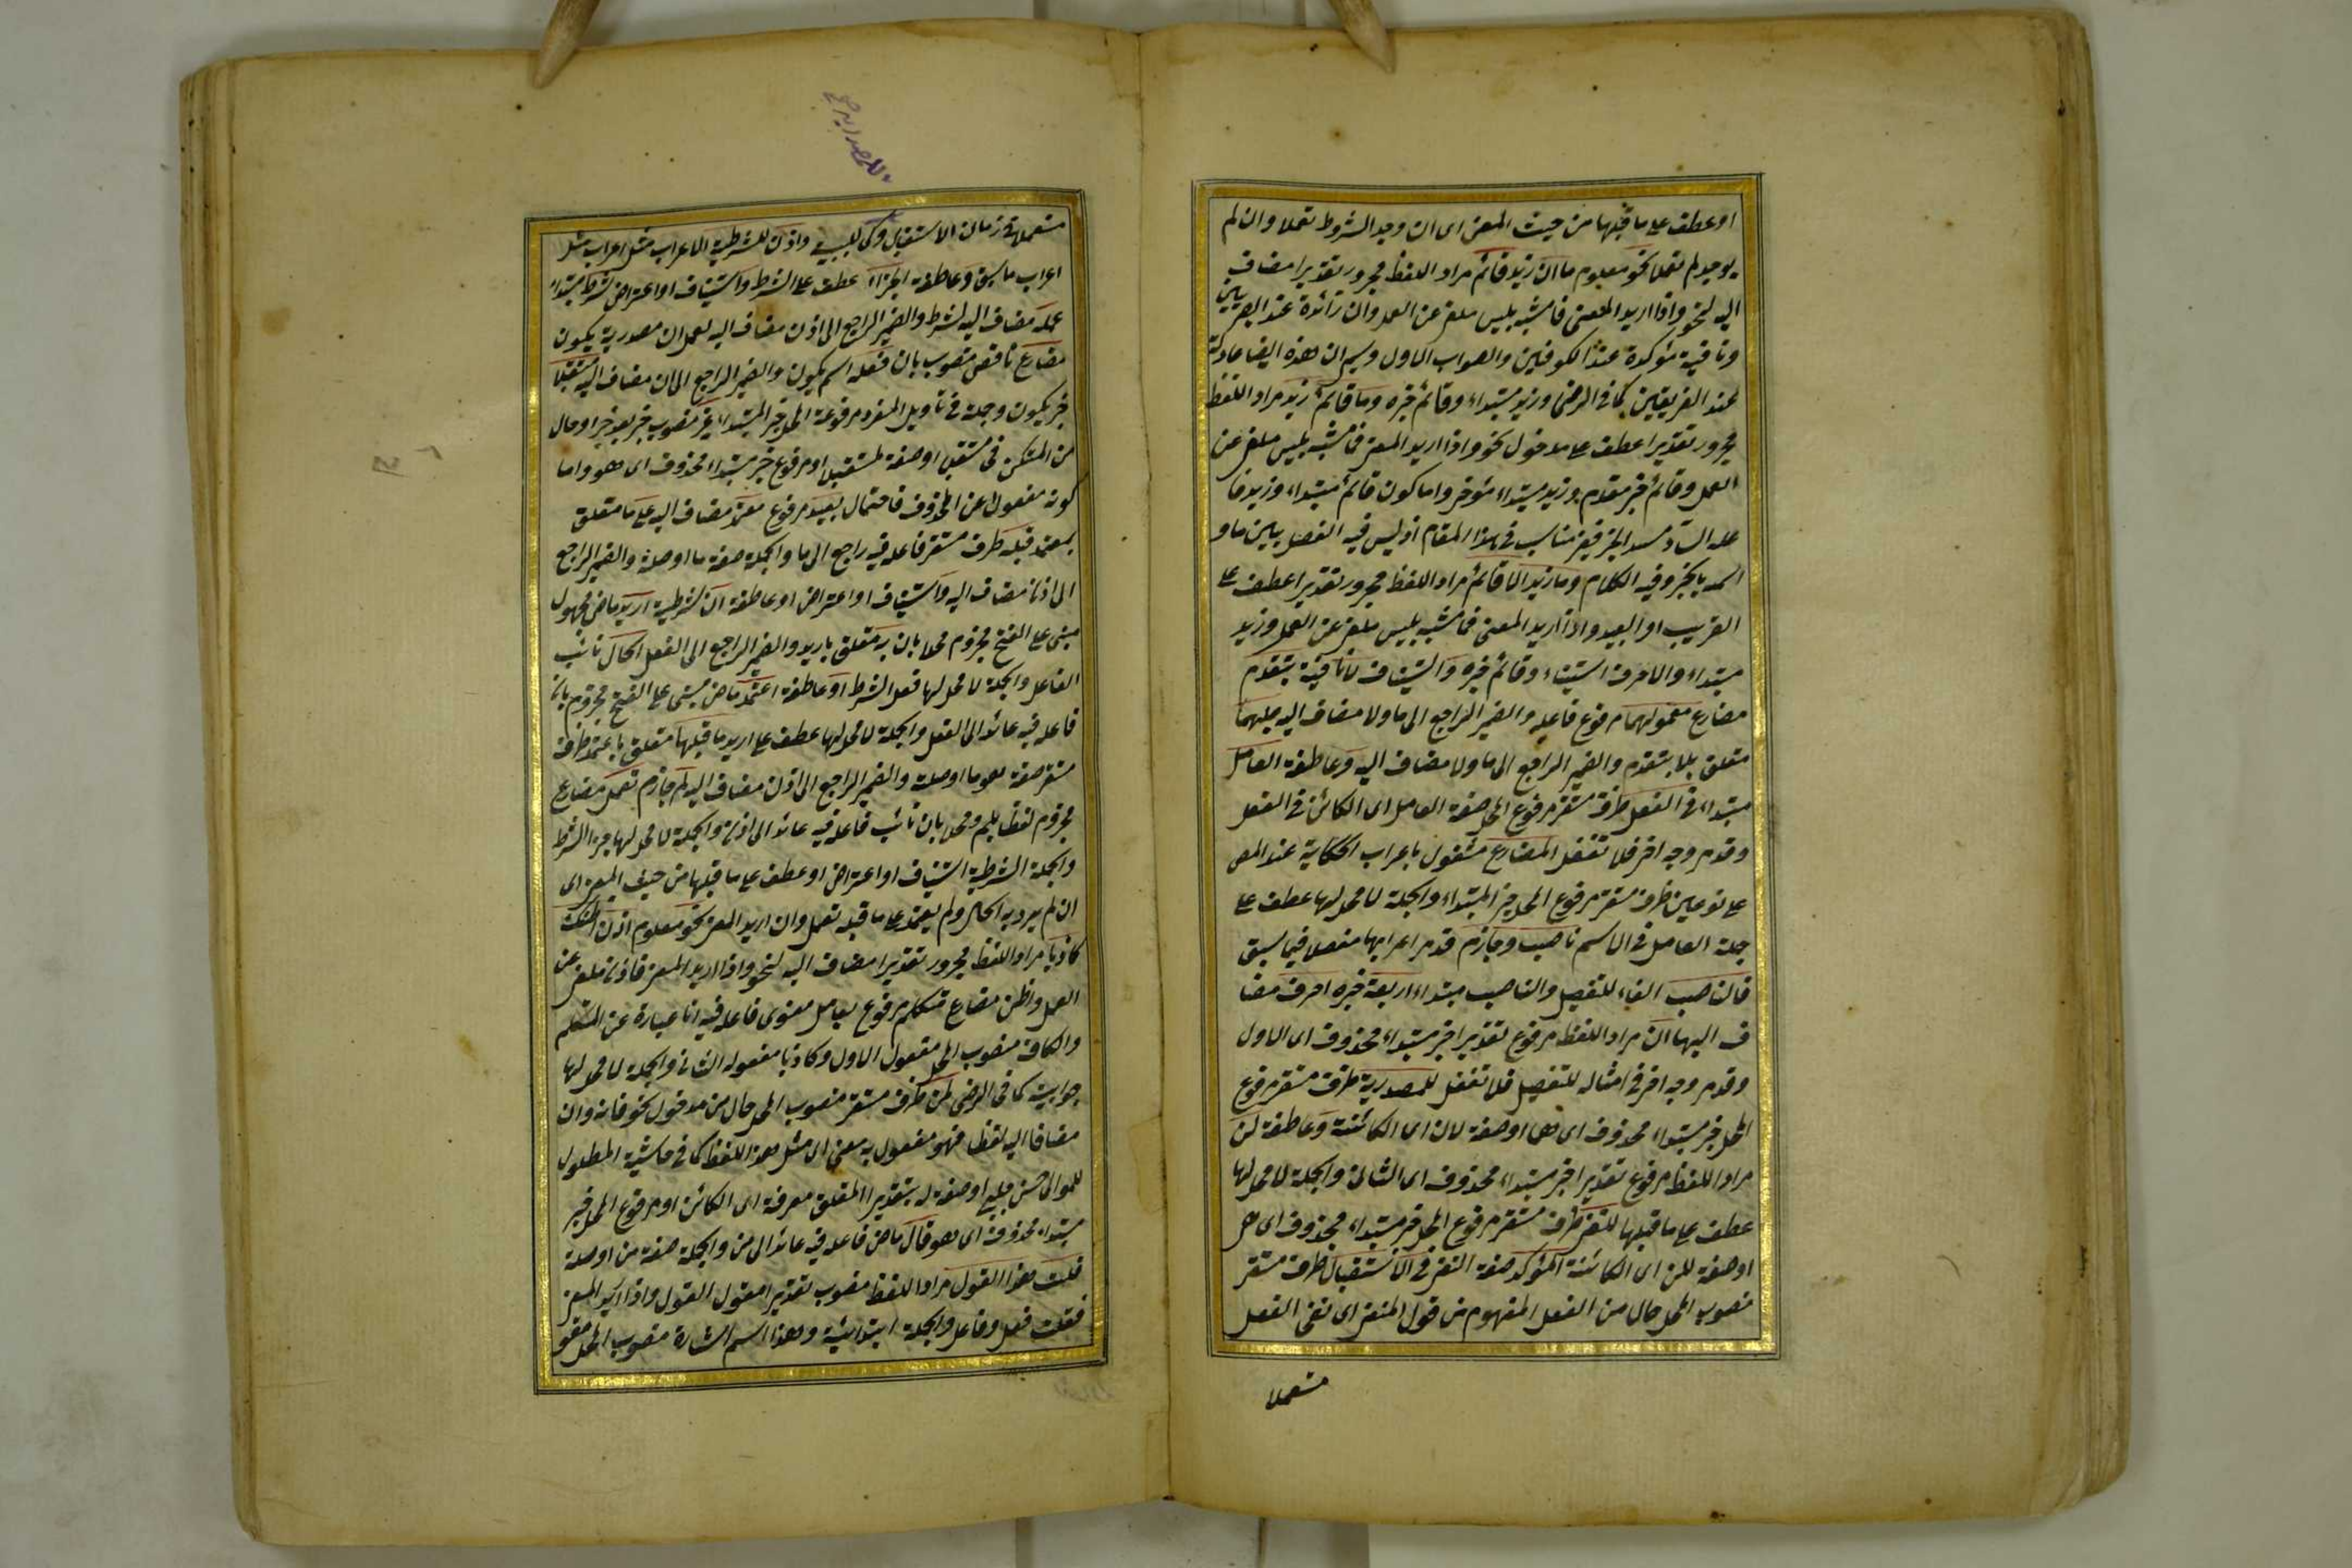 او عطف على ما قبلها من حيث المعنى اى ان وجد الشروط تعملا وان لم
يوجد لم تعملا نحو معلوم ما ان زيد قائم مراد اللفظ مجرور تقديرا مضاف
اليه لنحو واذا اريد المعنى فما مشبه بليس ملغى عن العمل وان زائدة عند البصريين
ونافية مؤكدة عند الكوفيين والصواب الاول
عند الفريقين كما فى الرضى وزيد مبتداء وقائم خبره وما قائم زيد مراد اللفظ
مجرور تقديرا عطف على مدخول نحو واذا اريد المعنى فما مشبه بليس ملغى عن
العمل وقائم خبر مقدم وزيد مبتداء مؤخر واما كون قائم مبتداء وزيد فا
عله الساد مسد الخبر فغير مناسب فى هذا المقام اذ ليس فيه الفصل بين ما و
اسمه بالخبر وفيه الكلام وما زيد الا قائم مراد اللفظ مجرور تقديرا عطف على
القريب او البعيد واذا اريد المعنى فما مشبه بليس ملغى عن العمل وزيد
مبتداء والا حرف استثناء وقائم خبره و استيناف لا نافية يتقدم
مضارع معمولهما مرفوع فاعله والضمير الراجع الى ما ولا مضاف اليه عليهما
متعلق بلا يتقدم والضمير الراجع الى ما ولا مضاف اليه و عاطفة العامل
مبتداء فى الفعل ظرف مستقر مرفوع المحل صفة العامل اى الكائن فى الفعل
وقد مر وجه اخر فلا تغفل المضارع مشغول باعراب الحكاية عند المص
على نوعين ظرف مستقر مرفوع المحل خبر المبتداء والجملة لا محل لها عطف على
جملة العامل فى الاسم ناصب وجازم قد مر اعرابها مفصلا فيما سبق
فالناصب الفاء للتفصيل والناصب مبتداء اربعة خبره احرف مضا
ف اليها ان مراد اللفظ مرفوع تقديرا خبر مبتداء محذوف اى الاول
وقد مر وجه اخر فى امثاله للتفصيل فلا تغفل للمصدرية ظرف مستقر مرفوع
المحل خبر مبتداء محذوف اى هى او صفة لان اى الكائنة و عاطفة لن
مراد اللفظ مرفوع تقديرا خبر مبتداء محذوف اى الثانى والجملة لا محل لها
عطف على ما قبلها للنفى ظرف مستقر مرفوع المحل خبر مبتداء محذوف اى هى
او صفة للن اى الكائنة المؤكد صفة النفى فى الاستقبال ظرف مستقر
منصوب المحل حال من الفعل المفهوم من قول المنفى اى نفى الفعل
مستعملا
مستعملا فى زمان الاستقبال وكى للسببية واذن للشرطية الاعراب مثل اعراب مثل
اعراب ما سبق و عاطفة الجزاء عطف على الشرط و استيناف او اعتراض شرط مبتداء
عمله مضاف اليه لشرط والضمير الراجع الى اذن مضاف اليه لعمل ان مصدرية يكون
مضارع ناقص منصوب بان فعله اسم يكون والضمير الراجع الى ان مضاف اليه مستقبلا
خبر يكون وجملة فى تأويل المفرد مرفوعة المحل خبر المبتداء غير منصوب خبر بعد خبر او حال
من المستكن فى مستقبلا او صفة لمستقبلا او مرفوع خبر مبتداء محذوف اى هو واما
كونه مفعولا عن المحذوف فاحتمال بعيد مرفوع معتمد مضاف اليه على ما متعلق
بمعتمد قبله ظرف مستقر فاعله فيه راجع الى ما والجملة صفة ما او صلة والضمير الراجع
الى اذن مضاف اليه و استيناف او اعتراض او عاطفة ان شرطية اريد ماض مجهول
مبنى على الفتح مجزوم محلا بان به متعلق باريد والضمير الراجع الى الفعل الحال نائب
الفاعل والجملة لا محل لها فعل الشرط او عاطفة اعتمد ماض مبنى على الفتح مجزوم بان
فاعله فيه عائد الى الفعل والجملة لا محل لها عطف على اريد ما قبلها متعلق باعتمد ظرف
مستقر صفة لما او صلة والضمير الراجع الى اذن مضاف اليه لم جازم تعمل مضارع
مجزوم لفظا بلم ومحلا بان نائب فاعله فيه عائد الى اذن والجملة لا محل لها جزاء الشرط
والجملة الشرطية استيناف او اعتراض او عطف على ما قبلها من حيث المعنى اى
ان لم يرد به الحال ولم يعتمد على ما قبله تعمل وان اريد المعنى نحو معلوم اذن اظنك
كاذبا مراد اللفظ مجرور تقديرا مضاف اليه لنحو واذا اريد المعنى فاذن ملغى عن
العمل واظن مضارع متكلم مرفوع بعامل معنوى فاعله فيه انا عبارة عن المتكلم
والكاف منصوب المحل مفعول الاول وكاذبا مفعوله الثانى والجملة لا محل لها
جوابية كما فى الرضى لمن ظرف مستقر منصوب المحل حال من مدخول نحو فانه وان
مضافا اليه لفظا فهو مفعول به معنى اى مثل هذا اللفظ كما فى حاشية المطول
للمولى حسن چلبى او صفة له بتقدير المتعلق معرفة اى الكائن او مرفوع المحل خبر
مبتداء محذوف اى هو قال ماض فاعله فيه عائد الى من والجملة صفة من او صلة
قلت هذا القول مراد اللفظ منصوب تقديرا مقول القول واذا اريد المعنى
فقلت فعل وفاعل والجملة ابتدائية وهذا اسم اشارة منصوب المحل مفعو